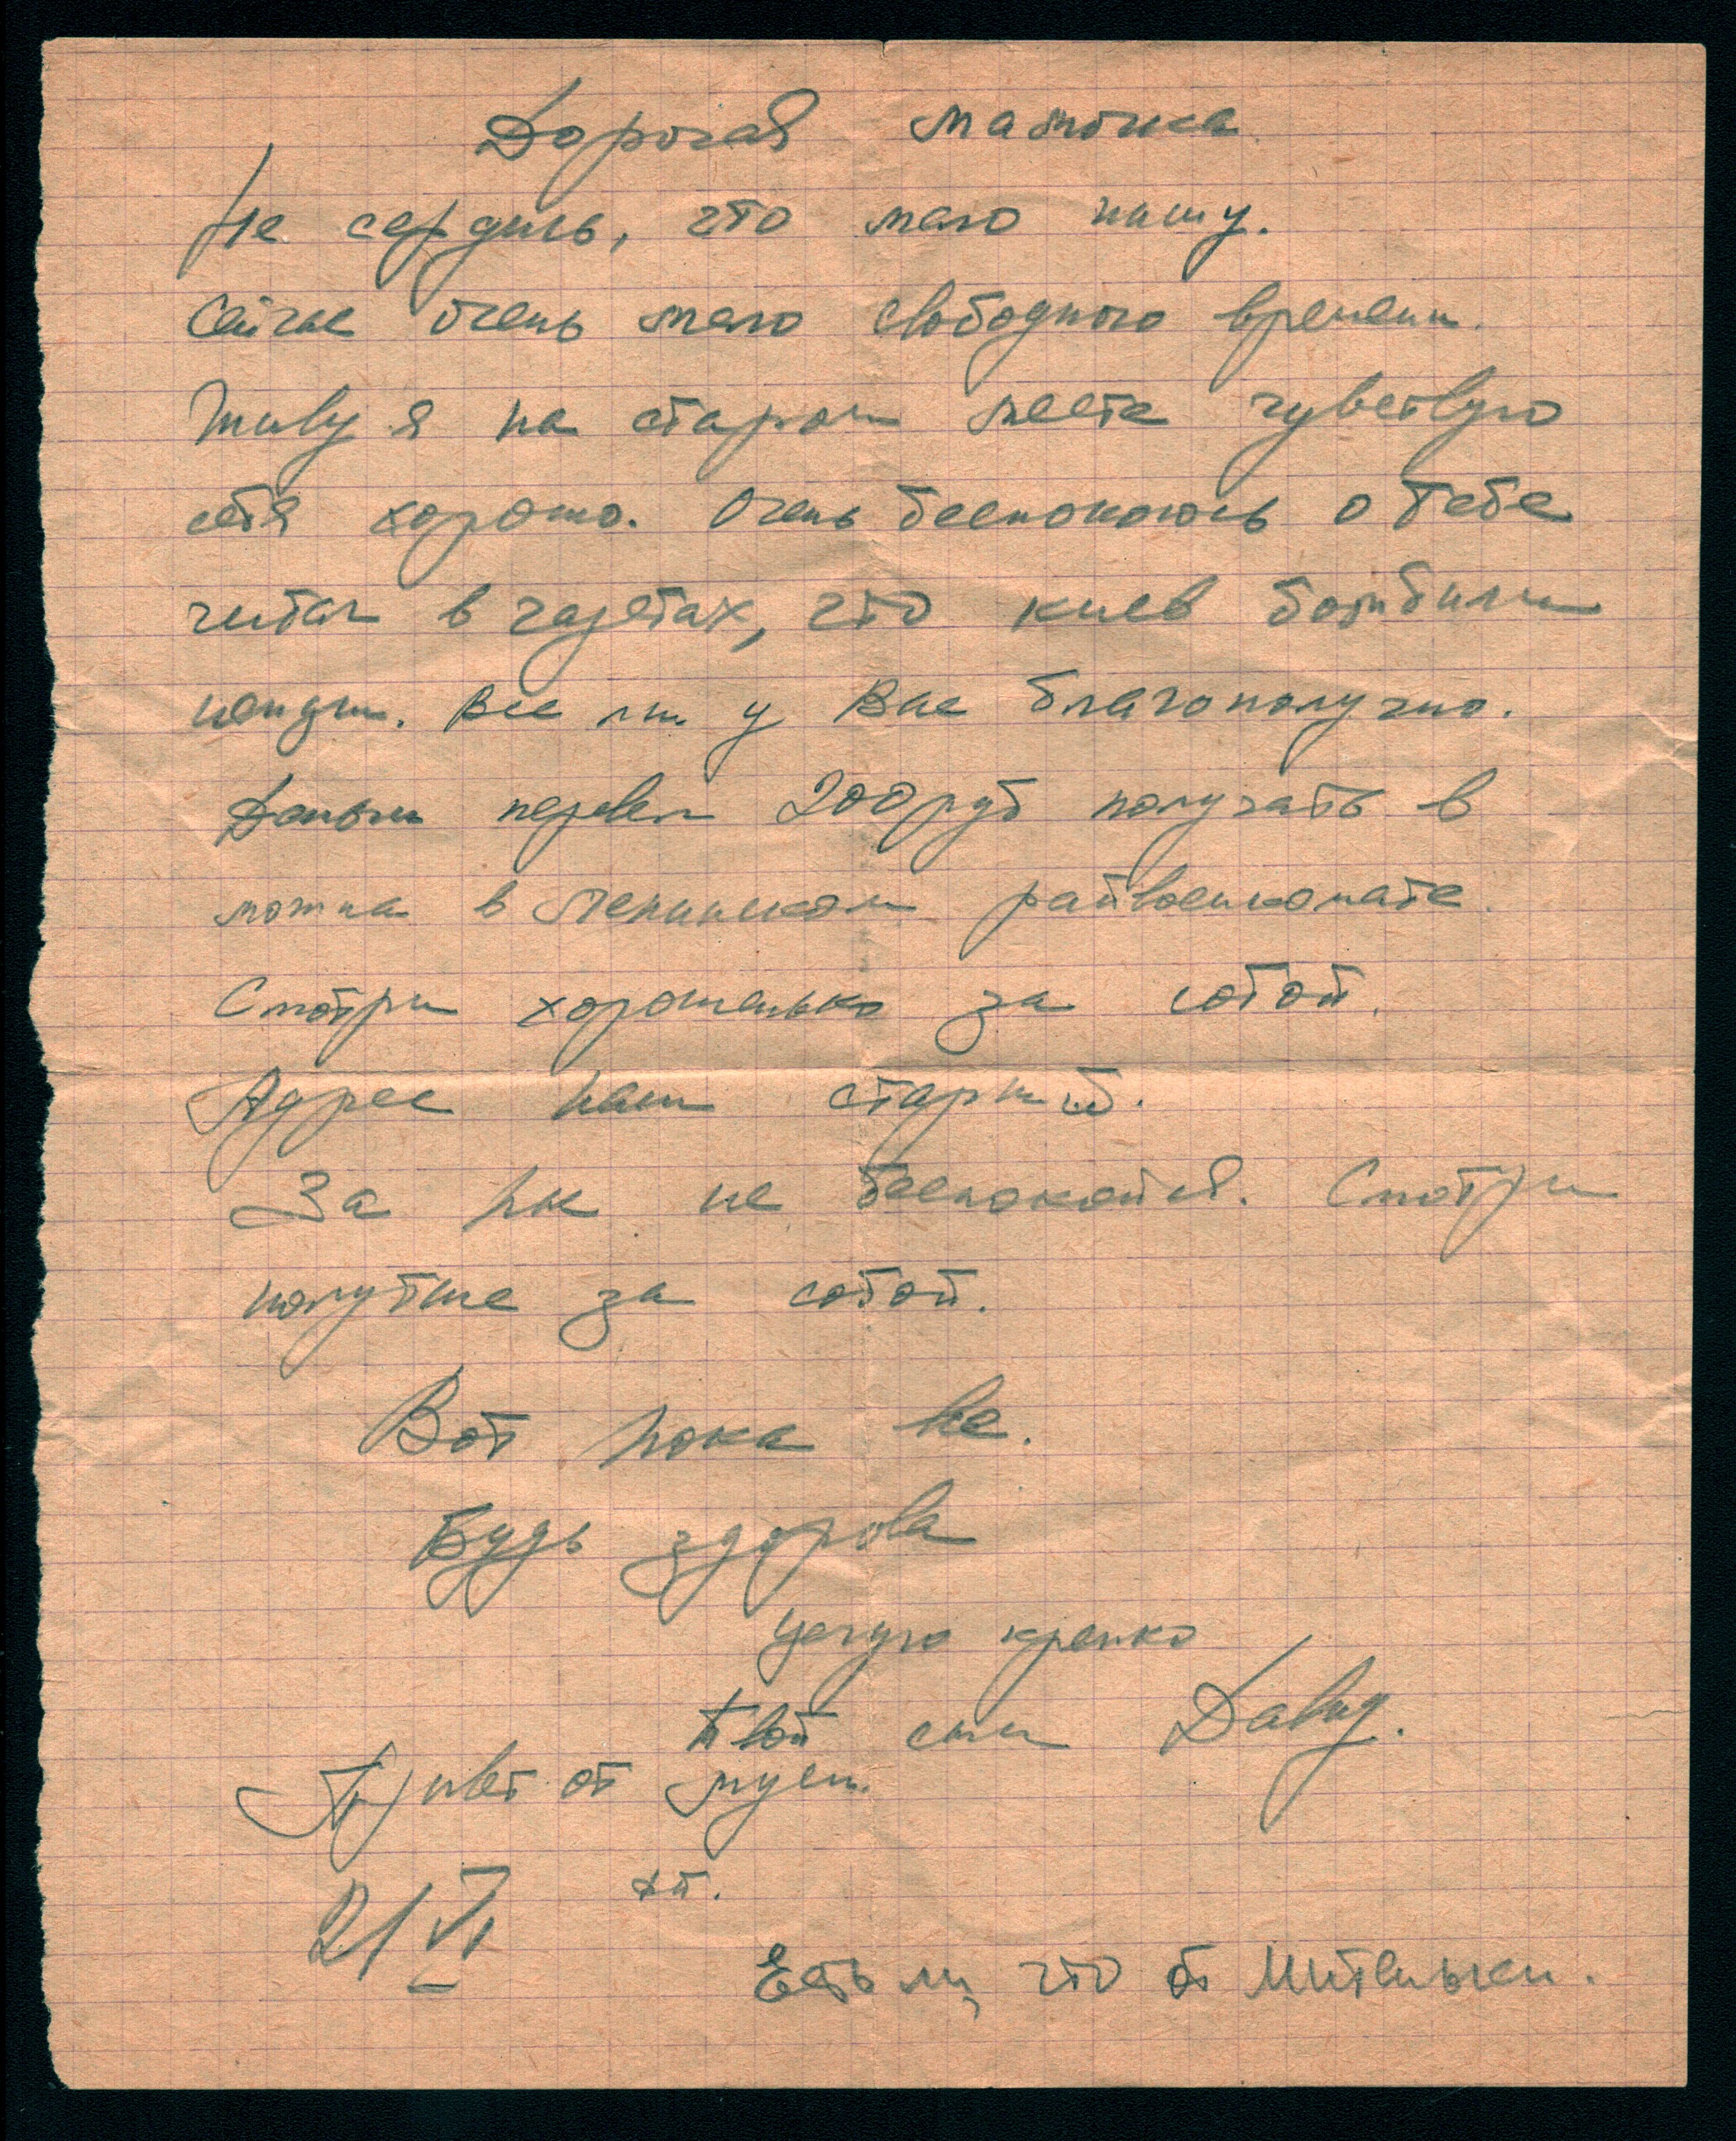 Дорогая мамочка
Не сердись, что мало пишу.
Сейчас очень мало свободного времени.
Живу я на старом месте чувствую
себя хорошо. Очень беспокоюсь о тебе
читал в газетах, что Киев бомбили
немцы. Все ли у Вас благополучно.
Деньги перевел 200 руб получать в
можна в Ленинском райвоенкомате.
Смотри хорошенько за собой.
Адрес наш старый.
За нас не беспокойся. Смотри
получше за собой.
Вот пока все.
Будь здорова
Целую крепко
Твой сын Давид.
Привет от Муси.
21 VI
Есть ли, что от Митеньки.